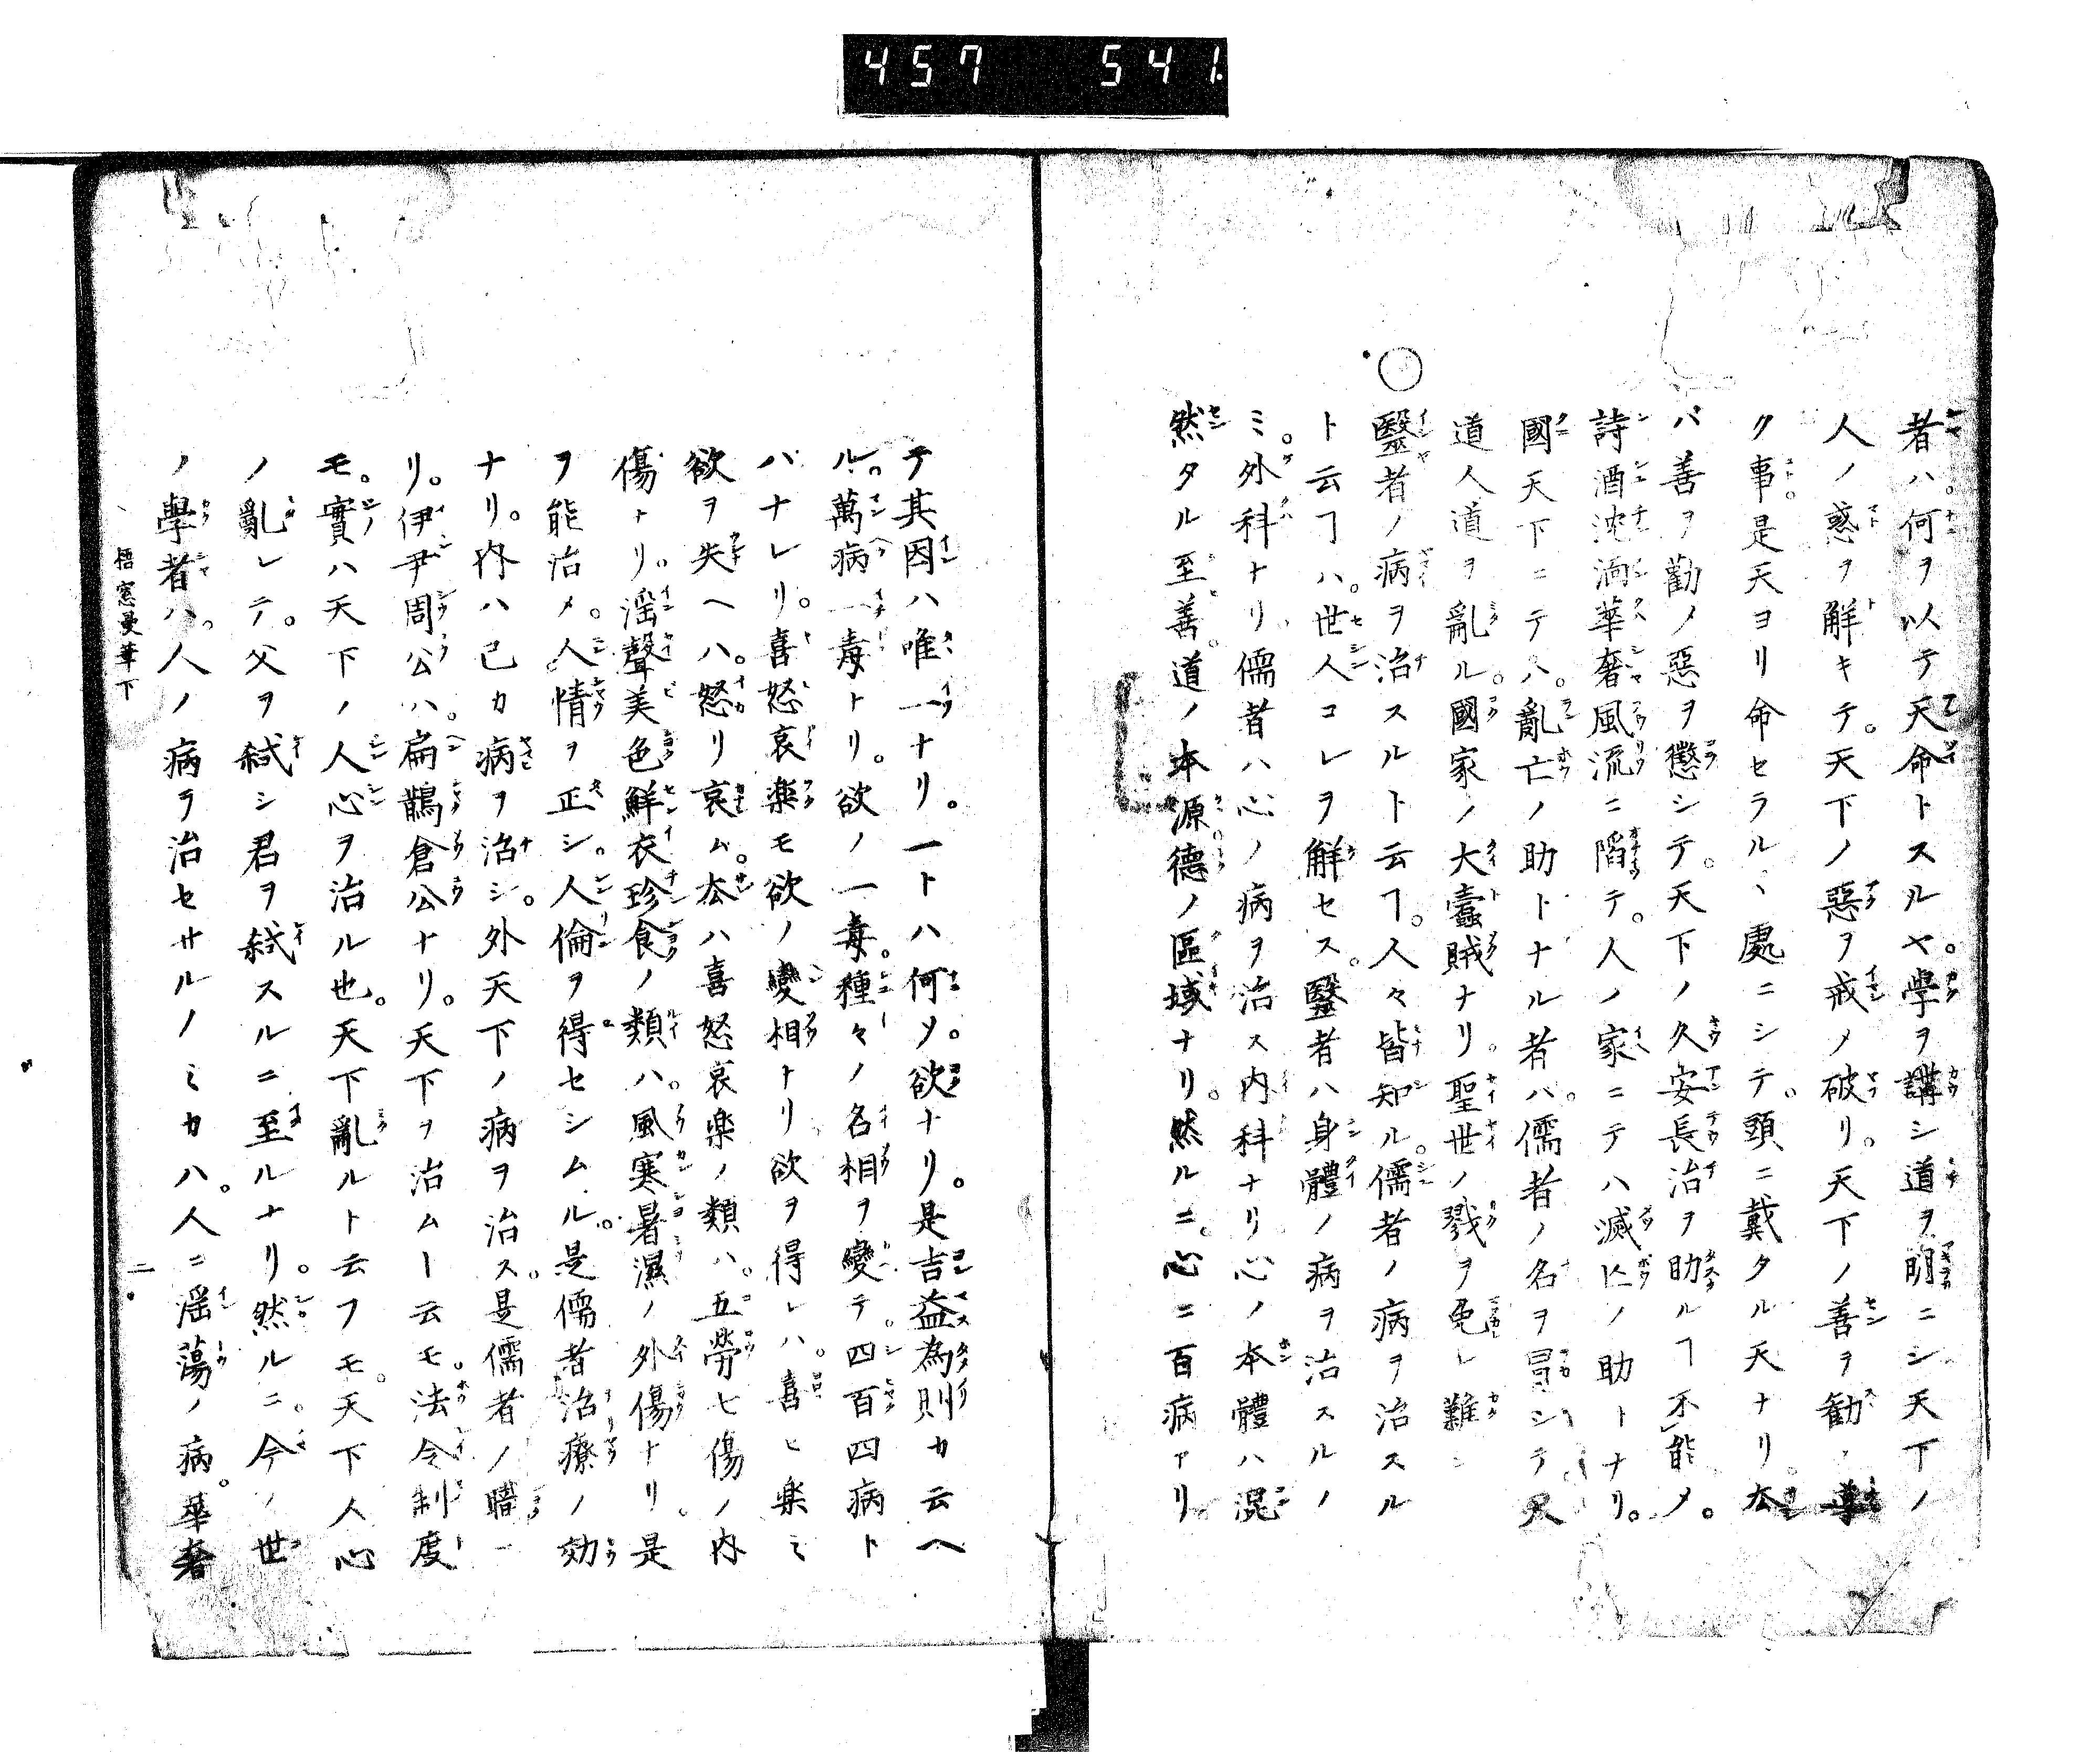 457 541
者ハ。何ヲ以テ天命トスルヤ。學ヲ講シ道ヲ明ニシ天下ノ
人ノ惑ヲ解キテ。天下ノ惡ヲ戒メ破リ。天下ノ善ヲ勧ミ導
ク事。是天ヨリ命セラルヽ處ニシテ。頭ニ戴タル天ナリ。夲
バ善ヲ勸メ惡ヲ懲シテ。天下ノ久安長治ヲ助ルヿ不能メ。
詩酒沈湎華奢風流ニ陷テ。人ノ家ニテハ滅亡ノ助トナリ。
國天下ニテハ。亂亡ノ助トナル者ハ。儒者ノ名ヲ冒シテ天
道人道ヲ亂ル。國家ノ大蠧賊ナリ。聖世ノ戮ヲ免レ難シ
○醫者ノ病ヲ治スルト云ヿ。人々皆知ル。儒者ノ病ヲ治スル
ト云ヿハ。世人コレヲ解セス。醫者ハ身體ノ病ヲ治スルノ
ミ。外科ナリ儒者ハ心ノ病ヲ治ス内科ナリ心ノ本體ハ混
然タル至善。道ノ本源德ノ區域ナリ。然ルニ。心ニ百病アリ
テ其因ハ唯一ナリ。一トハ何ソ。欲ナリ。是吉益為則カ云ヘ
ル。萬病一毒トリ。欲ノ一毒。種々ノ名相ヲ變テ。四百四病ト
バナレリ。喜怒哀楽モ欲ノ變相トリ欲ヲ得レハ。喜ヒ楽ミ
欲ヲ失ヘハ。怒リ哀ム。夲ハ喜怒哀楽ノ類ハ。五勞七傷ノ内
傷トリ。淫聲美色鮮衣珍食ノ類ハ。風寒暑濕ノ外傷ナリ。是
ヲ能治メ。人情ヲ正シ。人倫ヲ得セシムル。是儒者治療ノ効
ナリ。内ハ己カ病ヲ治シ。外天下ノ病ヲ治ス。是儒者ノ職
リ。伊尹周公ハ。扁鵲倉公ナリ。天下ヲ治ムト云モ。法令制度
モ。實ハ天下ノ人心ヲ治ル也。天下亂ルト云フモ。天下人心
ノ亂レテ。父ヲ弑シ君ヲ弑スルニ至ルナリ。然ルニ。今ノ世
ノ學者ハ。人ノ病ヲ治セサルノミカハ。人ニ淫蕩ノ病。華奢
梧窓漫筆下 二